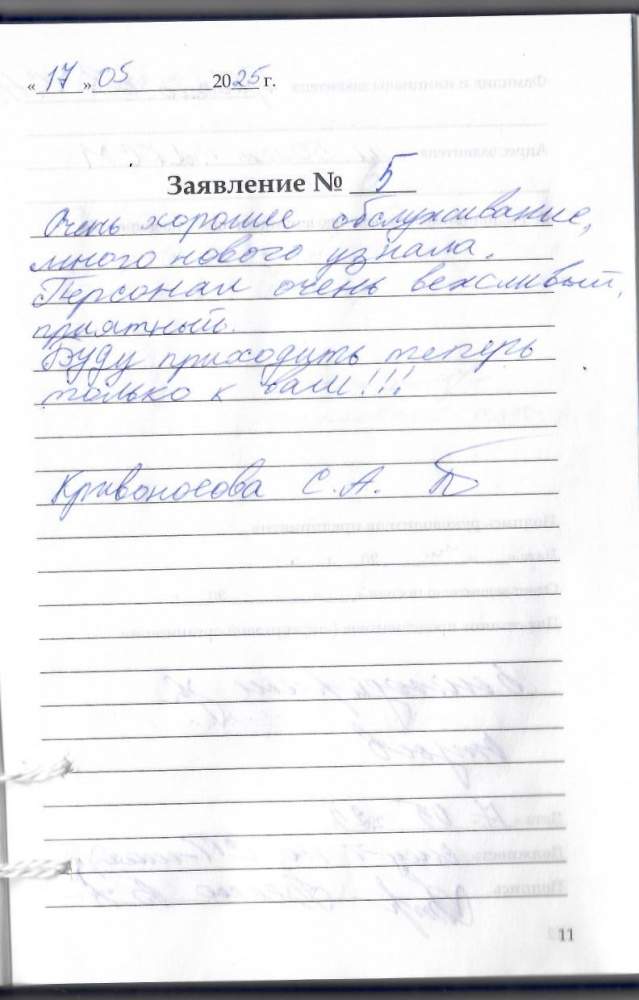 « 17 » 05 2025 г.
Заявление № 5
Очень хорошее обслуживание,
много нового узнала.
Персонал очень вежливый,
приятный.
Буду приходить теперь
только к вам!!!
Кривоносова С. А.
11